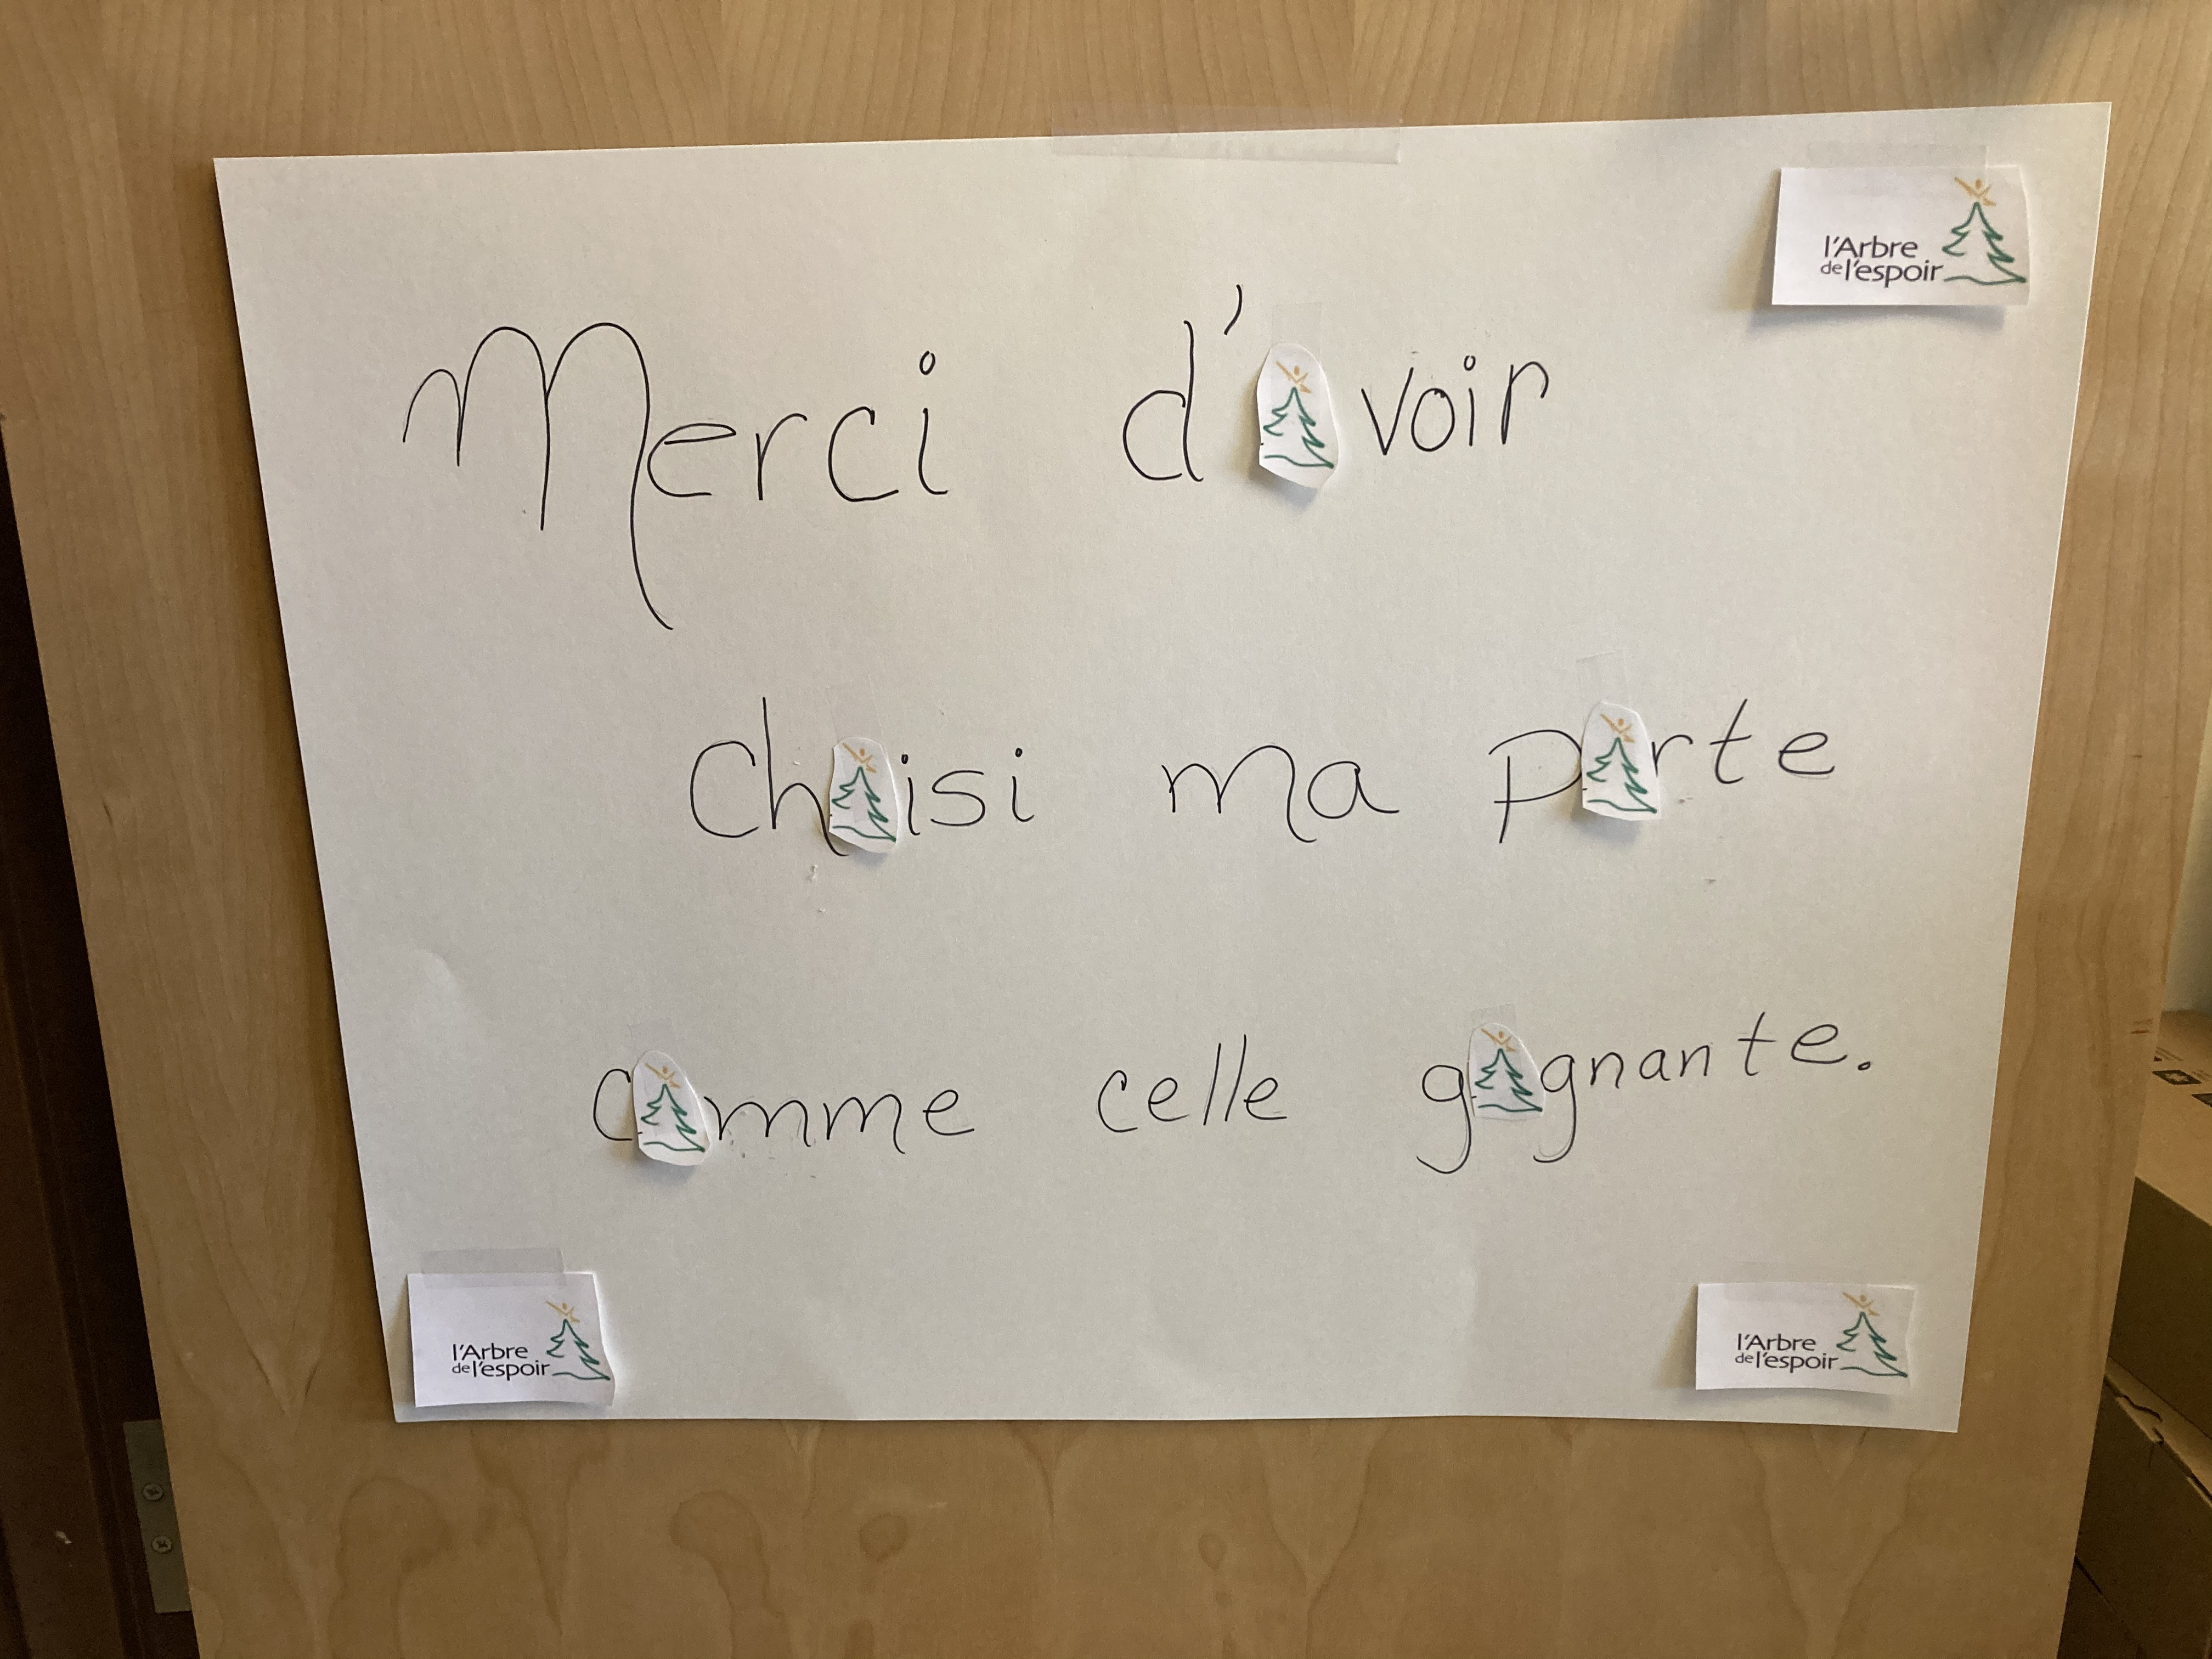 l'Arbre
de l'espoir
Merci d'avoir
choisi ma porte
comme celle gagnante.
l'Arbre
de l'espoir
l'Arbre
de l'espoir